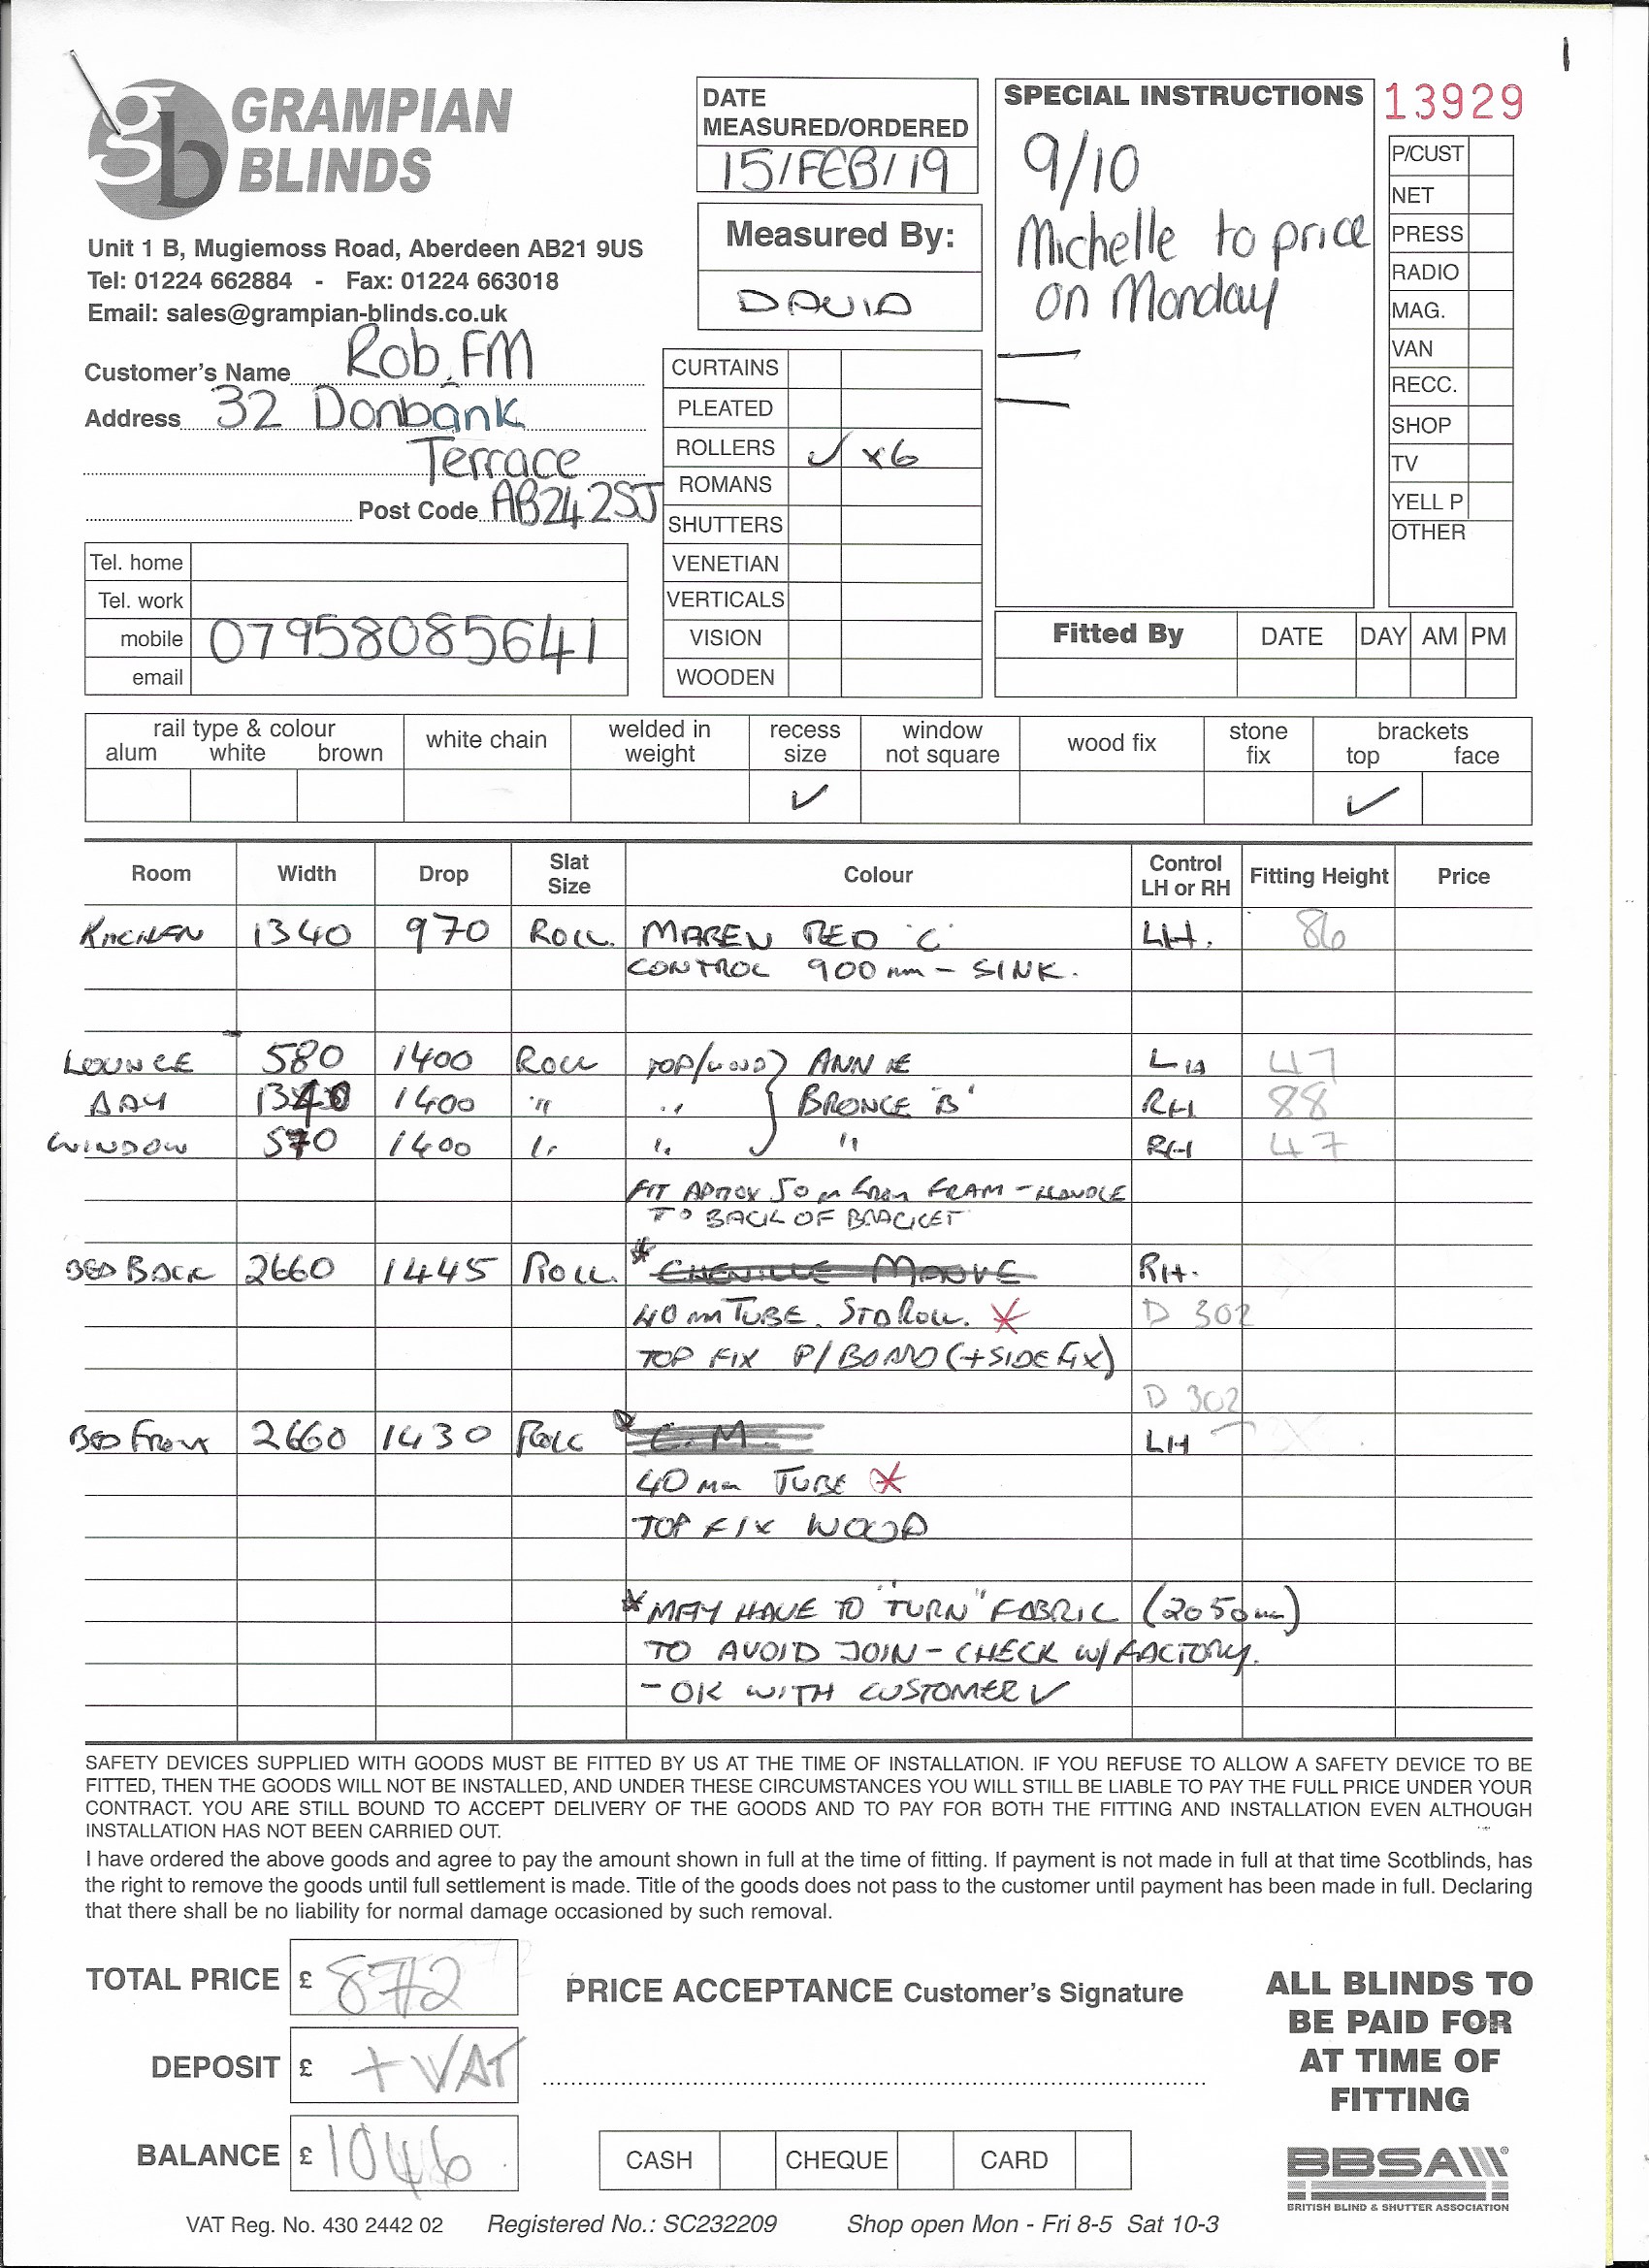 GRAMPIAN
BLINDS
Unit 1 B, Mugiemoss Road, Aberdeen AB21 9US
Tel: 01224 662884 - Fax: 01224 663018
Email: sales@grampian-blinds.co.uk
Customer's Name Rob FM
Address 32 Donbank
Terrace
Post Code AB24 2SJ
Tel. home
Tel. work
mobile 07958085641
email
DATE
MEASURED/ORDERED
15/FEB/19
Measured By:
DAVID
CURTAINS
PLEATED
ROLLERS ✓ x6
ROMANS
SHUTTERS
VENETIAN
VERTICALS
VISION
WOODEN
SPECIAL INSTRUCTIONS
9/10
Michelle to price
on Monday
1
13929
P/CUST
NET
PRESS
RADIO
MAG.
VAN
RECC.
SHOP
TV
YELL P
OTHER
Fitted By DATE DAY AM PM
rail type & colour
alum white brown
white chain
welded in
weight
recess
size
✓
window
not square
wood fix
stone
fix
brackets
top face
✓
Room Width Drop Slat Size Colour Control LH or RH Fitting Height Price
KITCHEN 1340 970 ROLL. MAREN RED 'C' LH. 86
CONTROL 900mm - SINK.
LOUNGE 580 1400 ROLL TOP/WOOD ANNIE LH 47
BAY 1340 1400 " " BRONCE 'B' RH 88
WINDOW 570 1400 " " " RH 47
FIT APROX 50m from FRAM - HANDLE
TO BACK OF BRACKET
BED BACK 2660 1445 ROLL. * CHENILLE MAOVE RH.
40mm TUBE. STD ROLL. * D 302
TOP FIX P/BOARD (+SIDE FIX)
D 302
BED FRONT 2660 1430 ROLL * C.M. LH
40mm TUBE *
TOP FIX WOOD
* MAY HAVE TO "TURN" FABRIC (2050mm)
TO AVOID JOIN - CHECK W/FACTORY.
- OK WITH CUSTOMER ✓
SAFETY DEVICES SUPPLIED WITH GOODS MUST BE FITTED BY US AT THE TIME OF INSTALLATION. IF YOU REFUSE TO ALLOW A SAFETY DEVICE TO BE
FITTED, THEN THE GOODS WILL NOT BE INSTALLED, AND UNDER THESE CIRCUMSTANCES YOU WILL STILL BE LIABLE TO PAY THE FULL PRICE UNDER YOUR
CONTRACT. YOU ARE STILL BOUND TO ACCEPT DELIVERY OF THE GOODS AND TO PAY FOR BOTH THE FITTING AND INSTALLATION EVEN ALTHOUGH
INSTALLATION HAS NOT BEEN CARRIED OUT.
I have ordered the above goods and agree to pay the amount shown in full at the time of fitting. If payment is not made in full at that time Scotblinds, has
the right to remove the goods until full settlement is made. Title of the goods does not pass to the customer until payment has been made in full. Declaring
that there shall be no liability for normal damage occasioned by such removal.
TOTAL PRICE £ 872
DEPOSIT £ + VAT
BALANCE £ 1046
PRICE ACCEPTANCE Customer's Signature
CASH CHEQUE CARD
ALL BLINDS TO
BE PAID FOR
AT TIME OF
FITTING
BBSA
BRITISH BLIND & SHUTTER ASSOCIATION
VAT Reg. No. 430 2442 02 Registered No.: SC232209 Shop open Mon - Fri 8-5 Sat 10-3